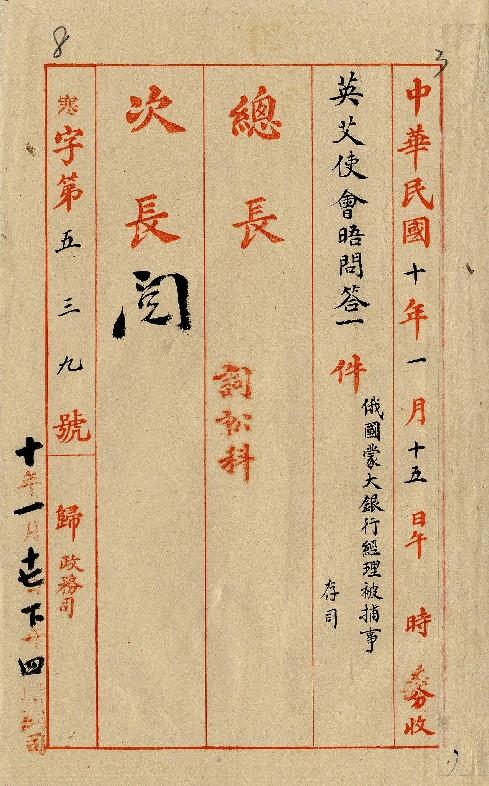 8
3
中華民國十年一月十五日午 時 分收
英艾使會晤問答一件
俄國蒙大銀行經理被捕事
存司
總長
詞訟科
次長
閱
寒字第五三九號
歸政務司
十年一月十七下午四